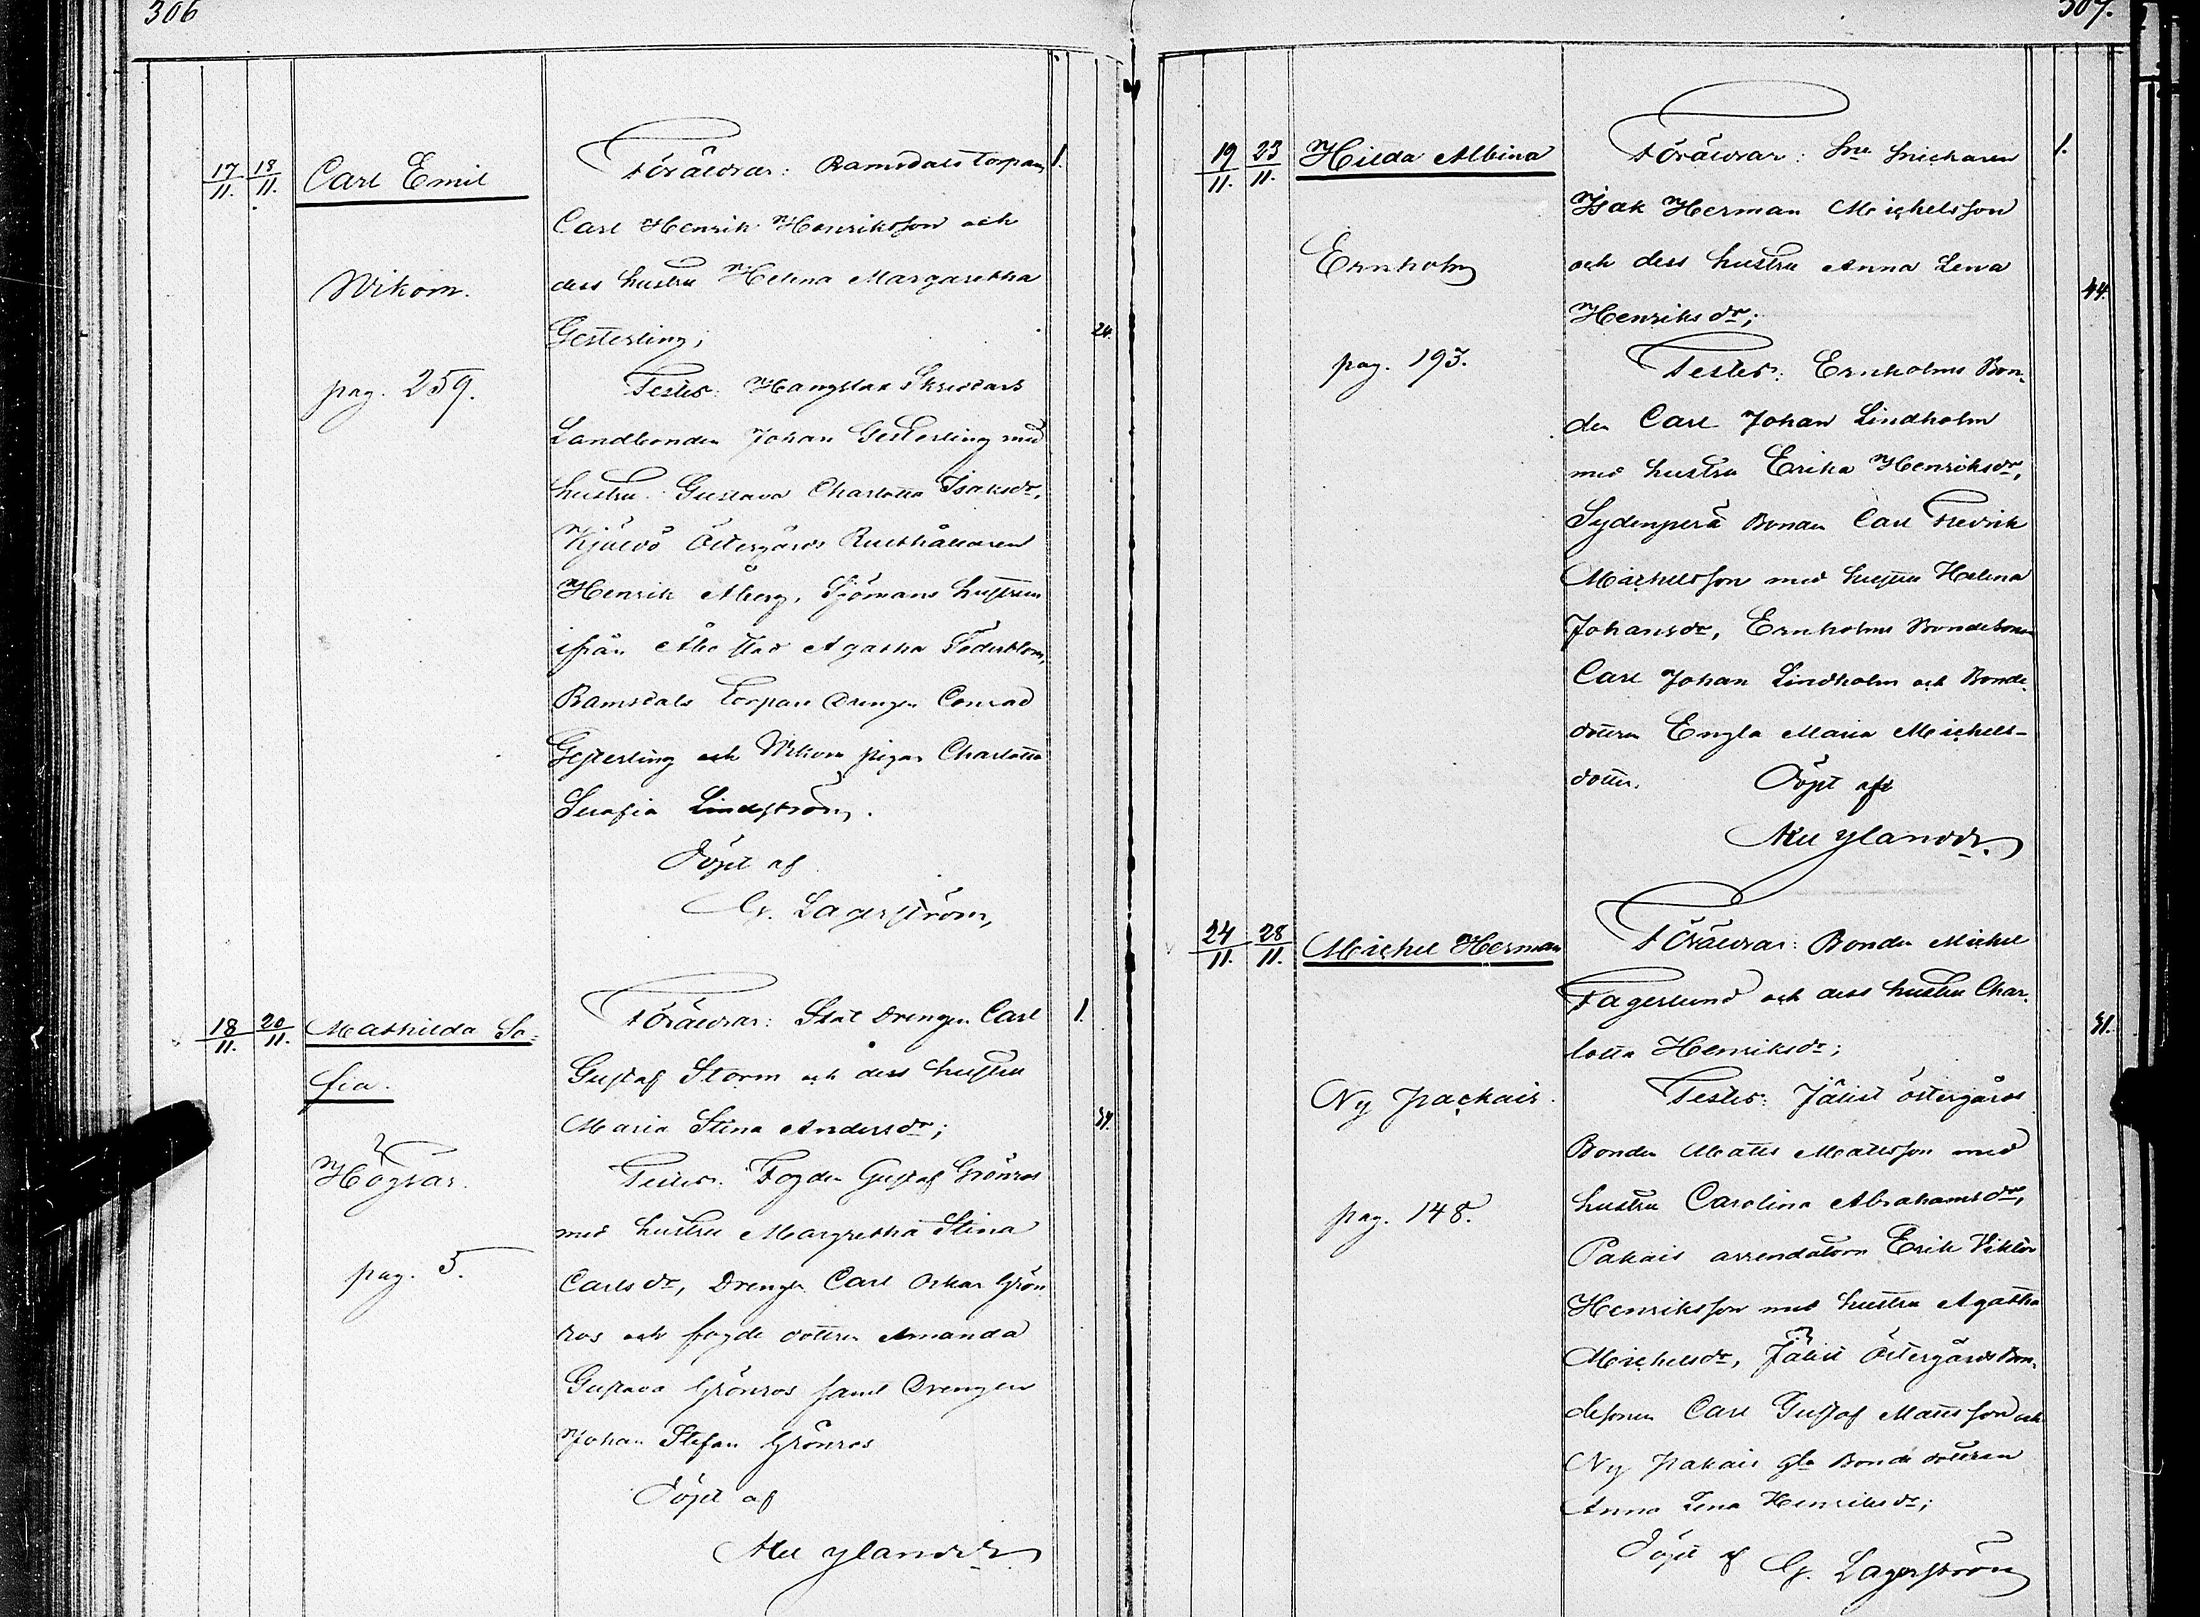 306
17/11. 18/11. Carl Emil
Föräldrar: Ramsdals torpare 1.
Carl Henrik Henriksson och
Wikom.
dess hustru Helena Margaretha
Gesterling; 24.
pag. 259.
Testes: Hangslax Skräddars
Landbonden Johan Gesterling med
hustru Gustava Charlotta Isaksdr,
Kjuldo Östergårds Rusthållaren
Henrik Åberg, Sjömans hustrun
ifrån Åbo stad Agatha Söderblom,
Ramsdals torpare drengen Conrad
Gesterling och Wikom pigan Charlotta
Serafia Lindström.
Döpt af
G. Lagerström,
18/11. 20/11. Mathilda So-
fia.
Föräldrar: Stat drengen Carl 1.
Gustaf Storm och dess hustru
Maria Stina Andersdr;
Högsar.
Testes: Fogden Gustaf Grönros
med hustru Margretha Stina
pag. 5.
Carlsdr, Drengen Carl Oskar Grön
ros och fogde dottren Amanda
Gustava Grönros samt Drengen
Johan Stefan Grönros
Döpt af
Alex Ylander
307.
19/11. 23/11. Hilda Albina
Föräldrar: Sne Snickaren 1.
Isak Herman Michelsson
Ernholm
och dess hustru Anna Lena
Henriksdr; 44.
pag. 193.
Testes: Ernholms Bon-
den Carl Johan Lindholm
med hustru Erika Henriksdr,
Sydenperä Bonden Carl Fredrik
Michelsson med hustru Helena
Johansdr, Ernholms Bondesonen
Carl Johan Lindholm och Bonde-
dottren Engla Maria Michels-
dotter. Döpt af
Alex Ylander.
24/11. 28/11. Michel Herman
Föräldrar: Bonden Michel
Fagerlund och dess hustru Char-
lotta Henriksdr; 31.
Ny Packais.
Testes: Jälist östergårds
Bonden Matts Mattsson med
pag. 148.
hustru Carolina Abrahamsdr,
Pakais arrendatorn Erik Viktor
Henriksson med hustru Agatha
Michelsdr, Jälist Östergårds Bon-
desonen Carl Gustaf Mattsson och
Ny Pakais Gla Bonde dottren
Anna Lena Henriksdr;
Döpt af G. Lagerström